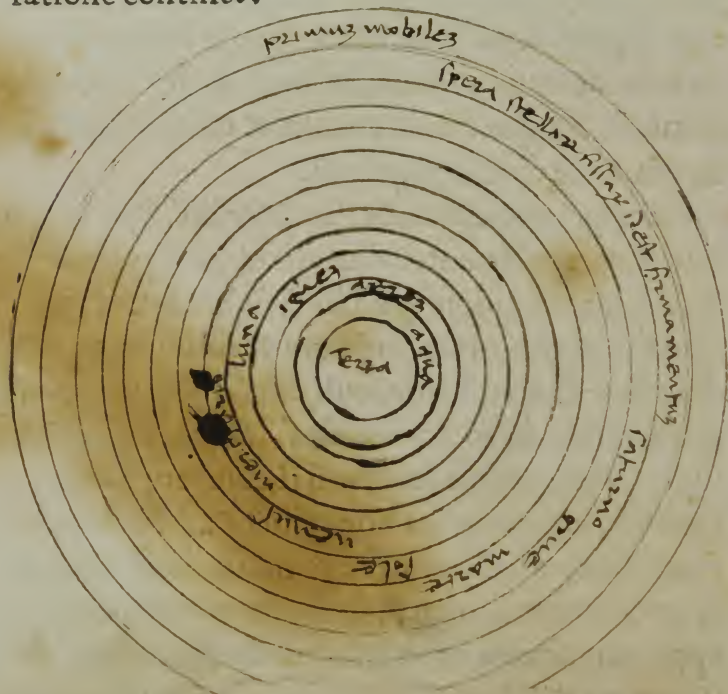 ratione continet.
primuz mobilez
spera stellaze fissaz idest firmamentuz
saturno
giove
marte
sole
venus
luna
ignez
aerez
aqua
Terra